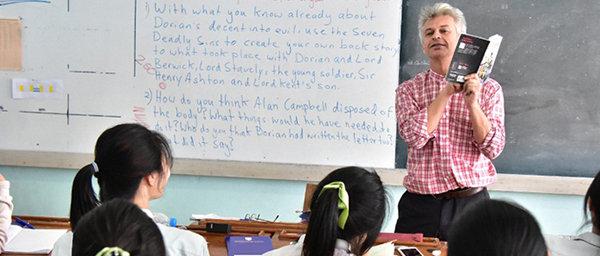 1) With what you know already about
Dorian's decent into evil, use the Seven
Deadly Sins to create your own back story
to what took place with Dorian and Lord
Berwick, Lord Stavely, the young soldier, Sir
Henry Ashton and Lord Kent's son.
2) How do you think Alan Campbell disposed of
the body? What things would he have needed to
do it? Who do you think Dorian had written the letter too?
What did it say?